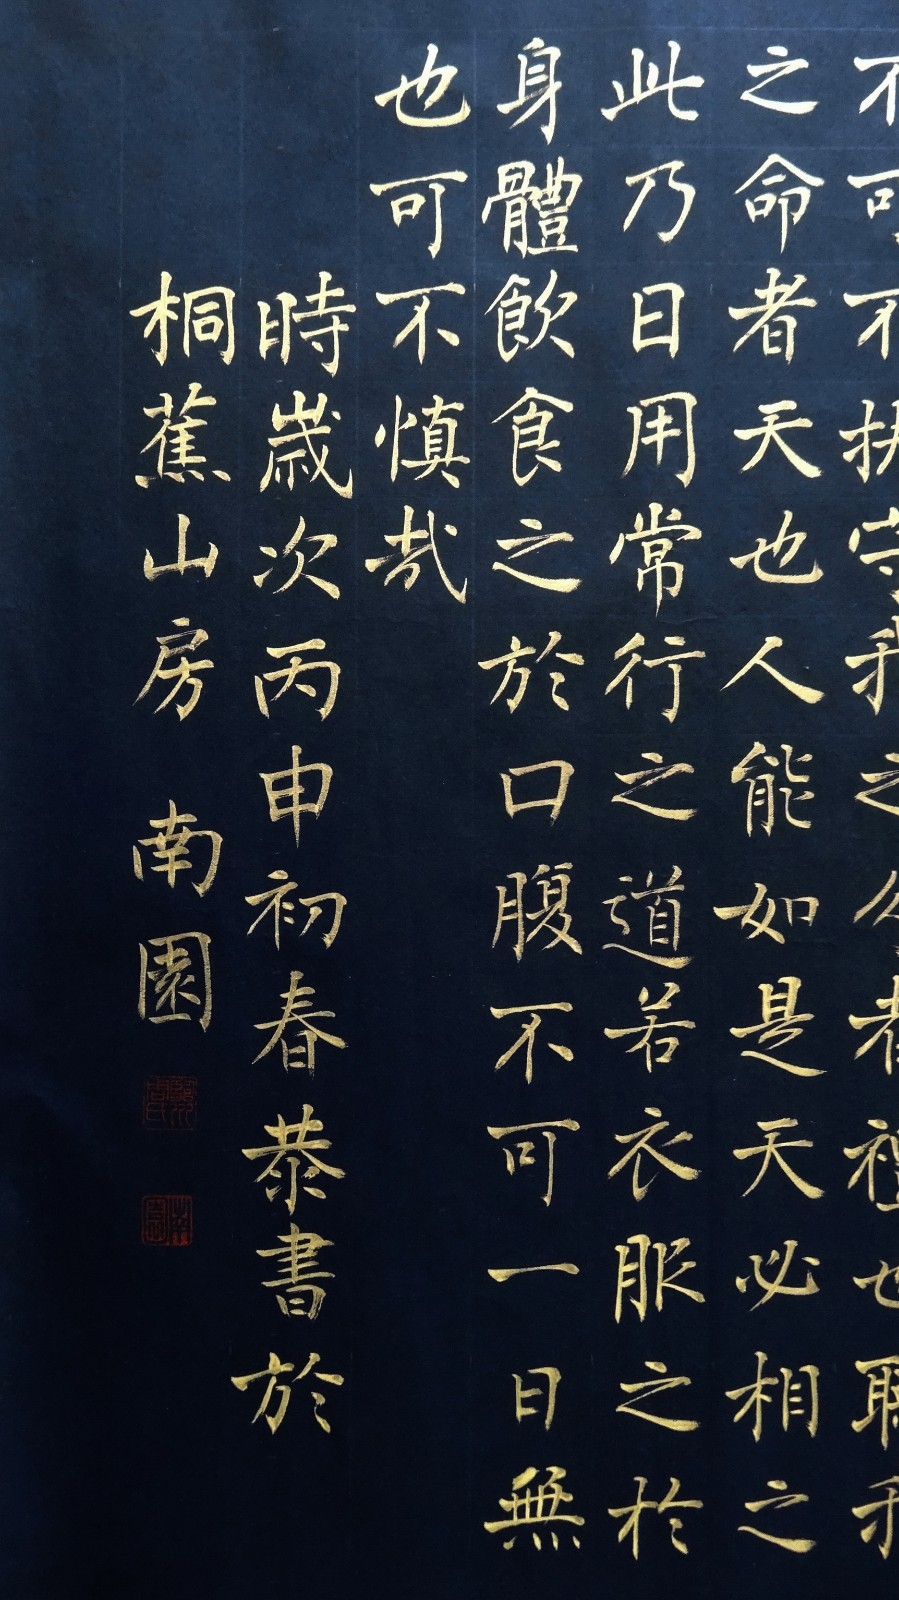 不可不執守我之分者禮也聽我
之命者天也人能如是天必相之
此乃日用常行之道若衣服之於
身體飲食之於口腹不可一日無
也可不慎哉
時歲次丙申初春恭書於
桐蕉山房 南園